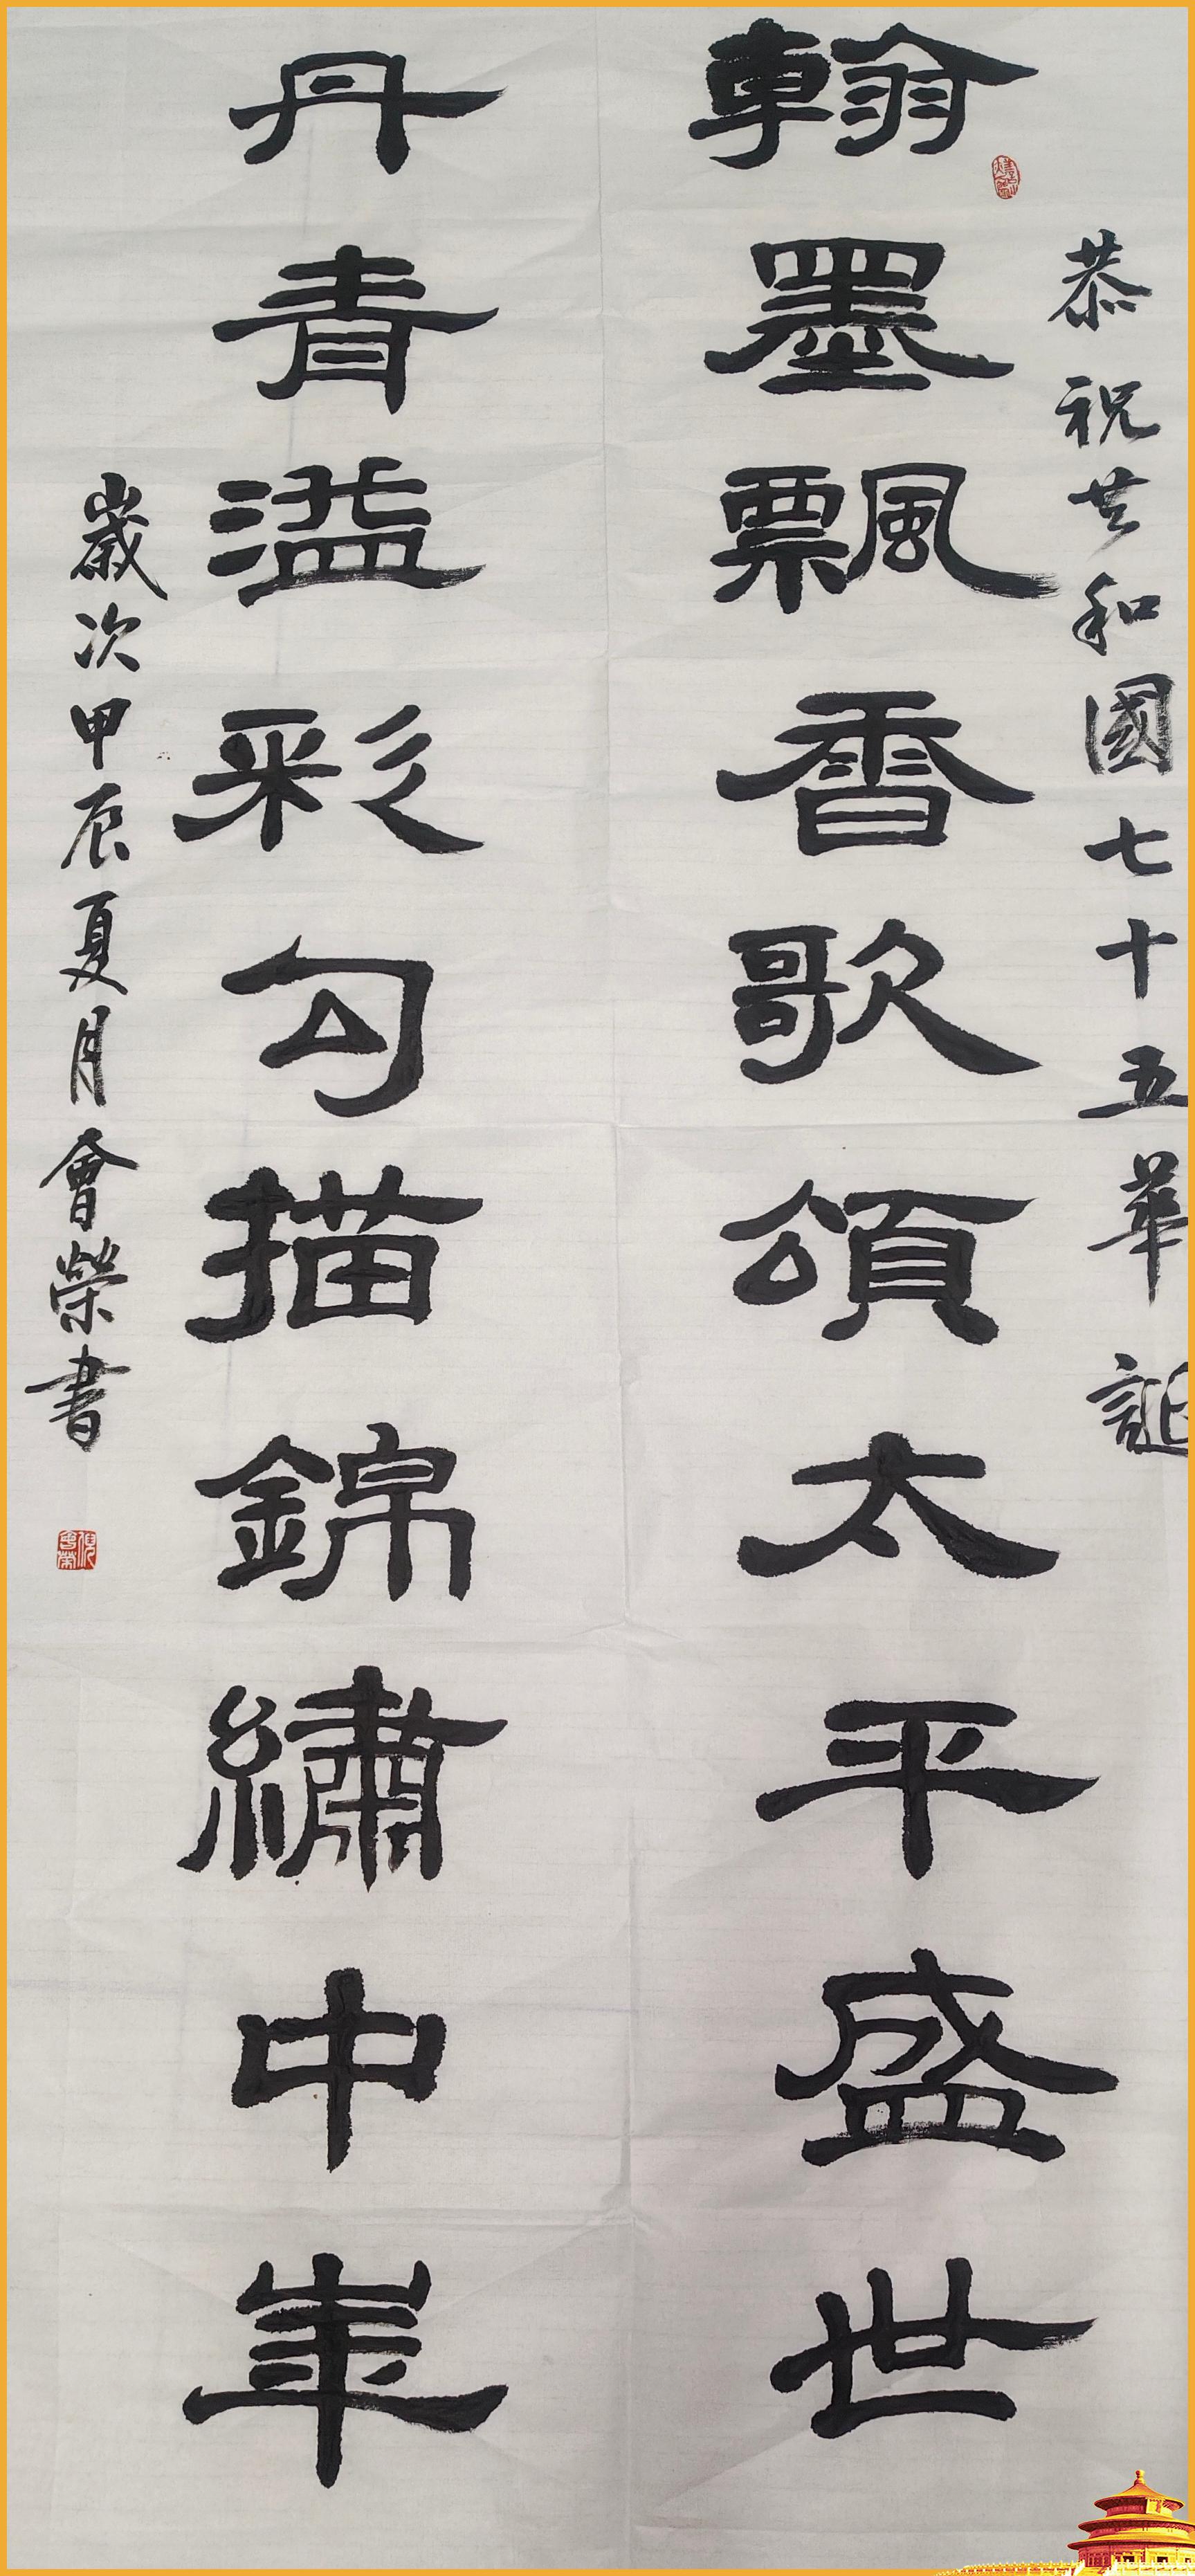 恭祝共和國七十五華誕
翰墨飄香歌頌太平盛世
丹青溢彩勾描錦繡中華
歲次甲辰夏月會榮書